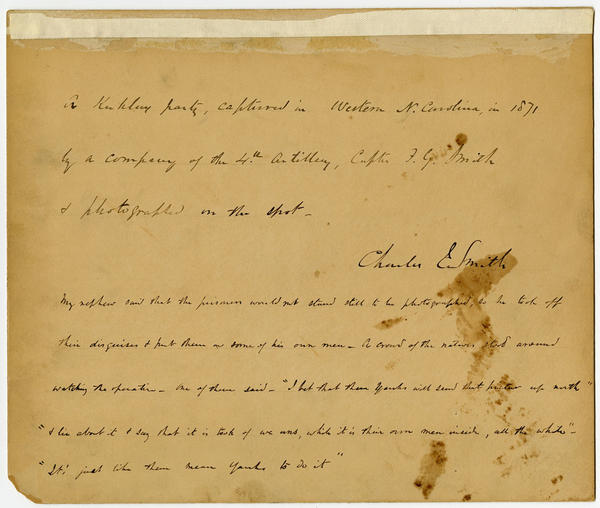 A Kuklux party, captured in Western N. Carolina, in 1871
by a company of the 4th Artillery, Captn F. G. Smith
& photographed on the spot –
Charles E. Smith
My nephew said that the prisoners would not stand still to be photographed, so he took off
their disguises & put them on some of his own men – A crowd of the natives stood around
watching the operation – One of them said – "I bet that them Yanks will send that picter up north"
"& lie about it & say that it is took of we uns, while it is their own men inside, all the while" –
"It's just like them mean Yanks to do it"